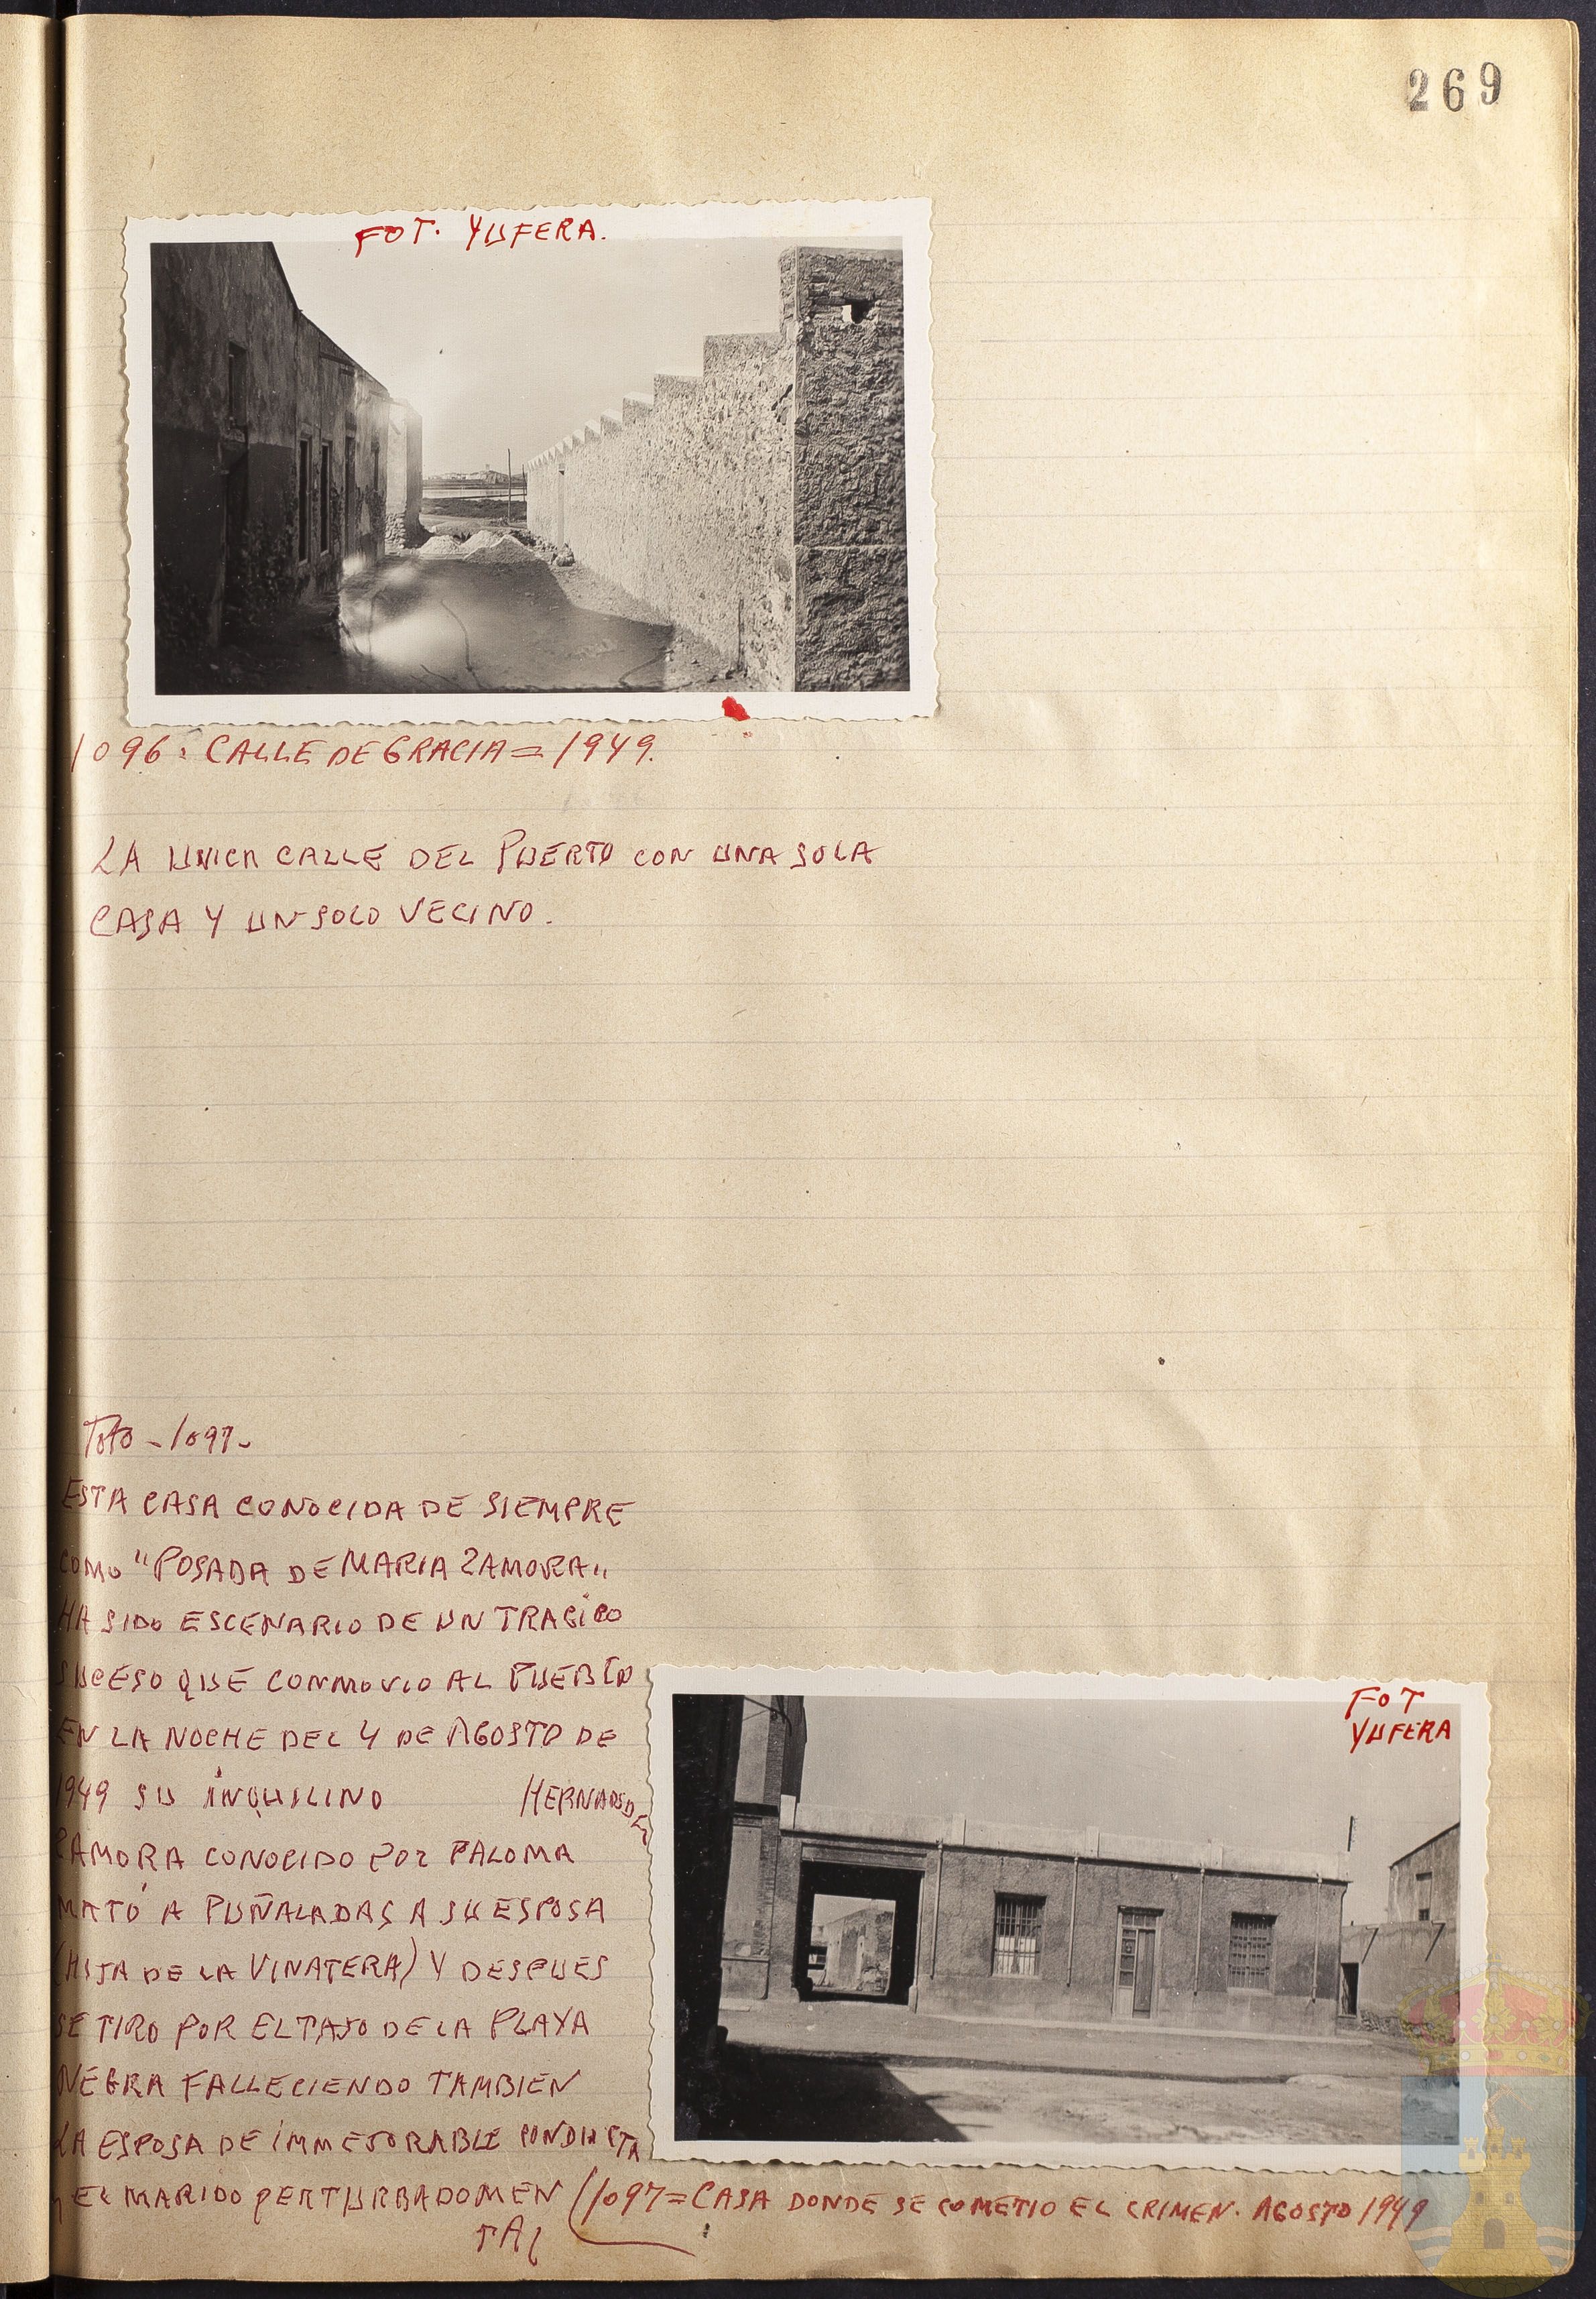 269
FOT. YUFERA.
1096: CALLE DE GRACIA = 1949.
LA UNICA CALLE DEL PUERTO CON UNA SOLA
CASA Y UN SOLO VECINO.
1097-
ESTA CASA CONOCIDA DE SIEMPRE
COMO "POSADA DE MARIA ZAMORA"
HA SIDO ESCENARIO DE UN TRAGICO
SUCESO QUE CONMOVIO AL PUEBLO
EN LA NOCHE DEL 4 DE AGOSTO DE
1949 SU INQUILINO HERNANDEZ
ZAMORA CONOCIDO POR PALOMA
MATÓ A PUÑALADAS A SU ESPOSA
(HIJA DE LA VINATERA) Y DESPUES
SE TIRO POR EL TAJO DE LA PLAYA
NEGRA FALLECIENDO TAMBIEN
LA ESPOSA DE IMMEJORABLE CONDUCTA
Y EL MARIDO PERTURBADO MEN
TAL
FOT
YUFERA
1097 = CASA DONDE SE COMETIO EL CRIMEN. AGOSTO 1949